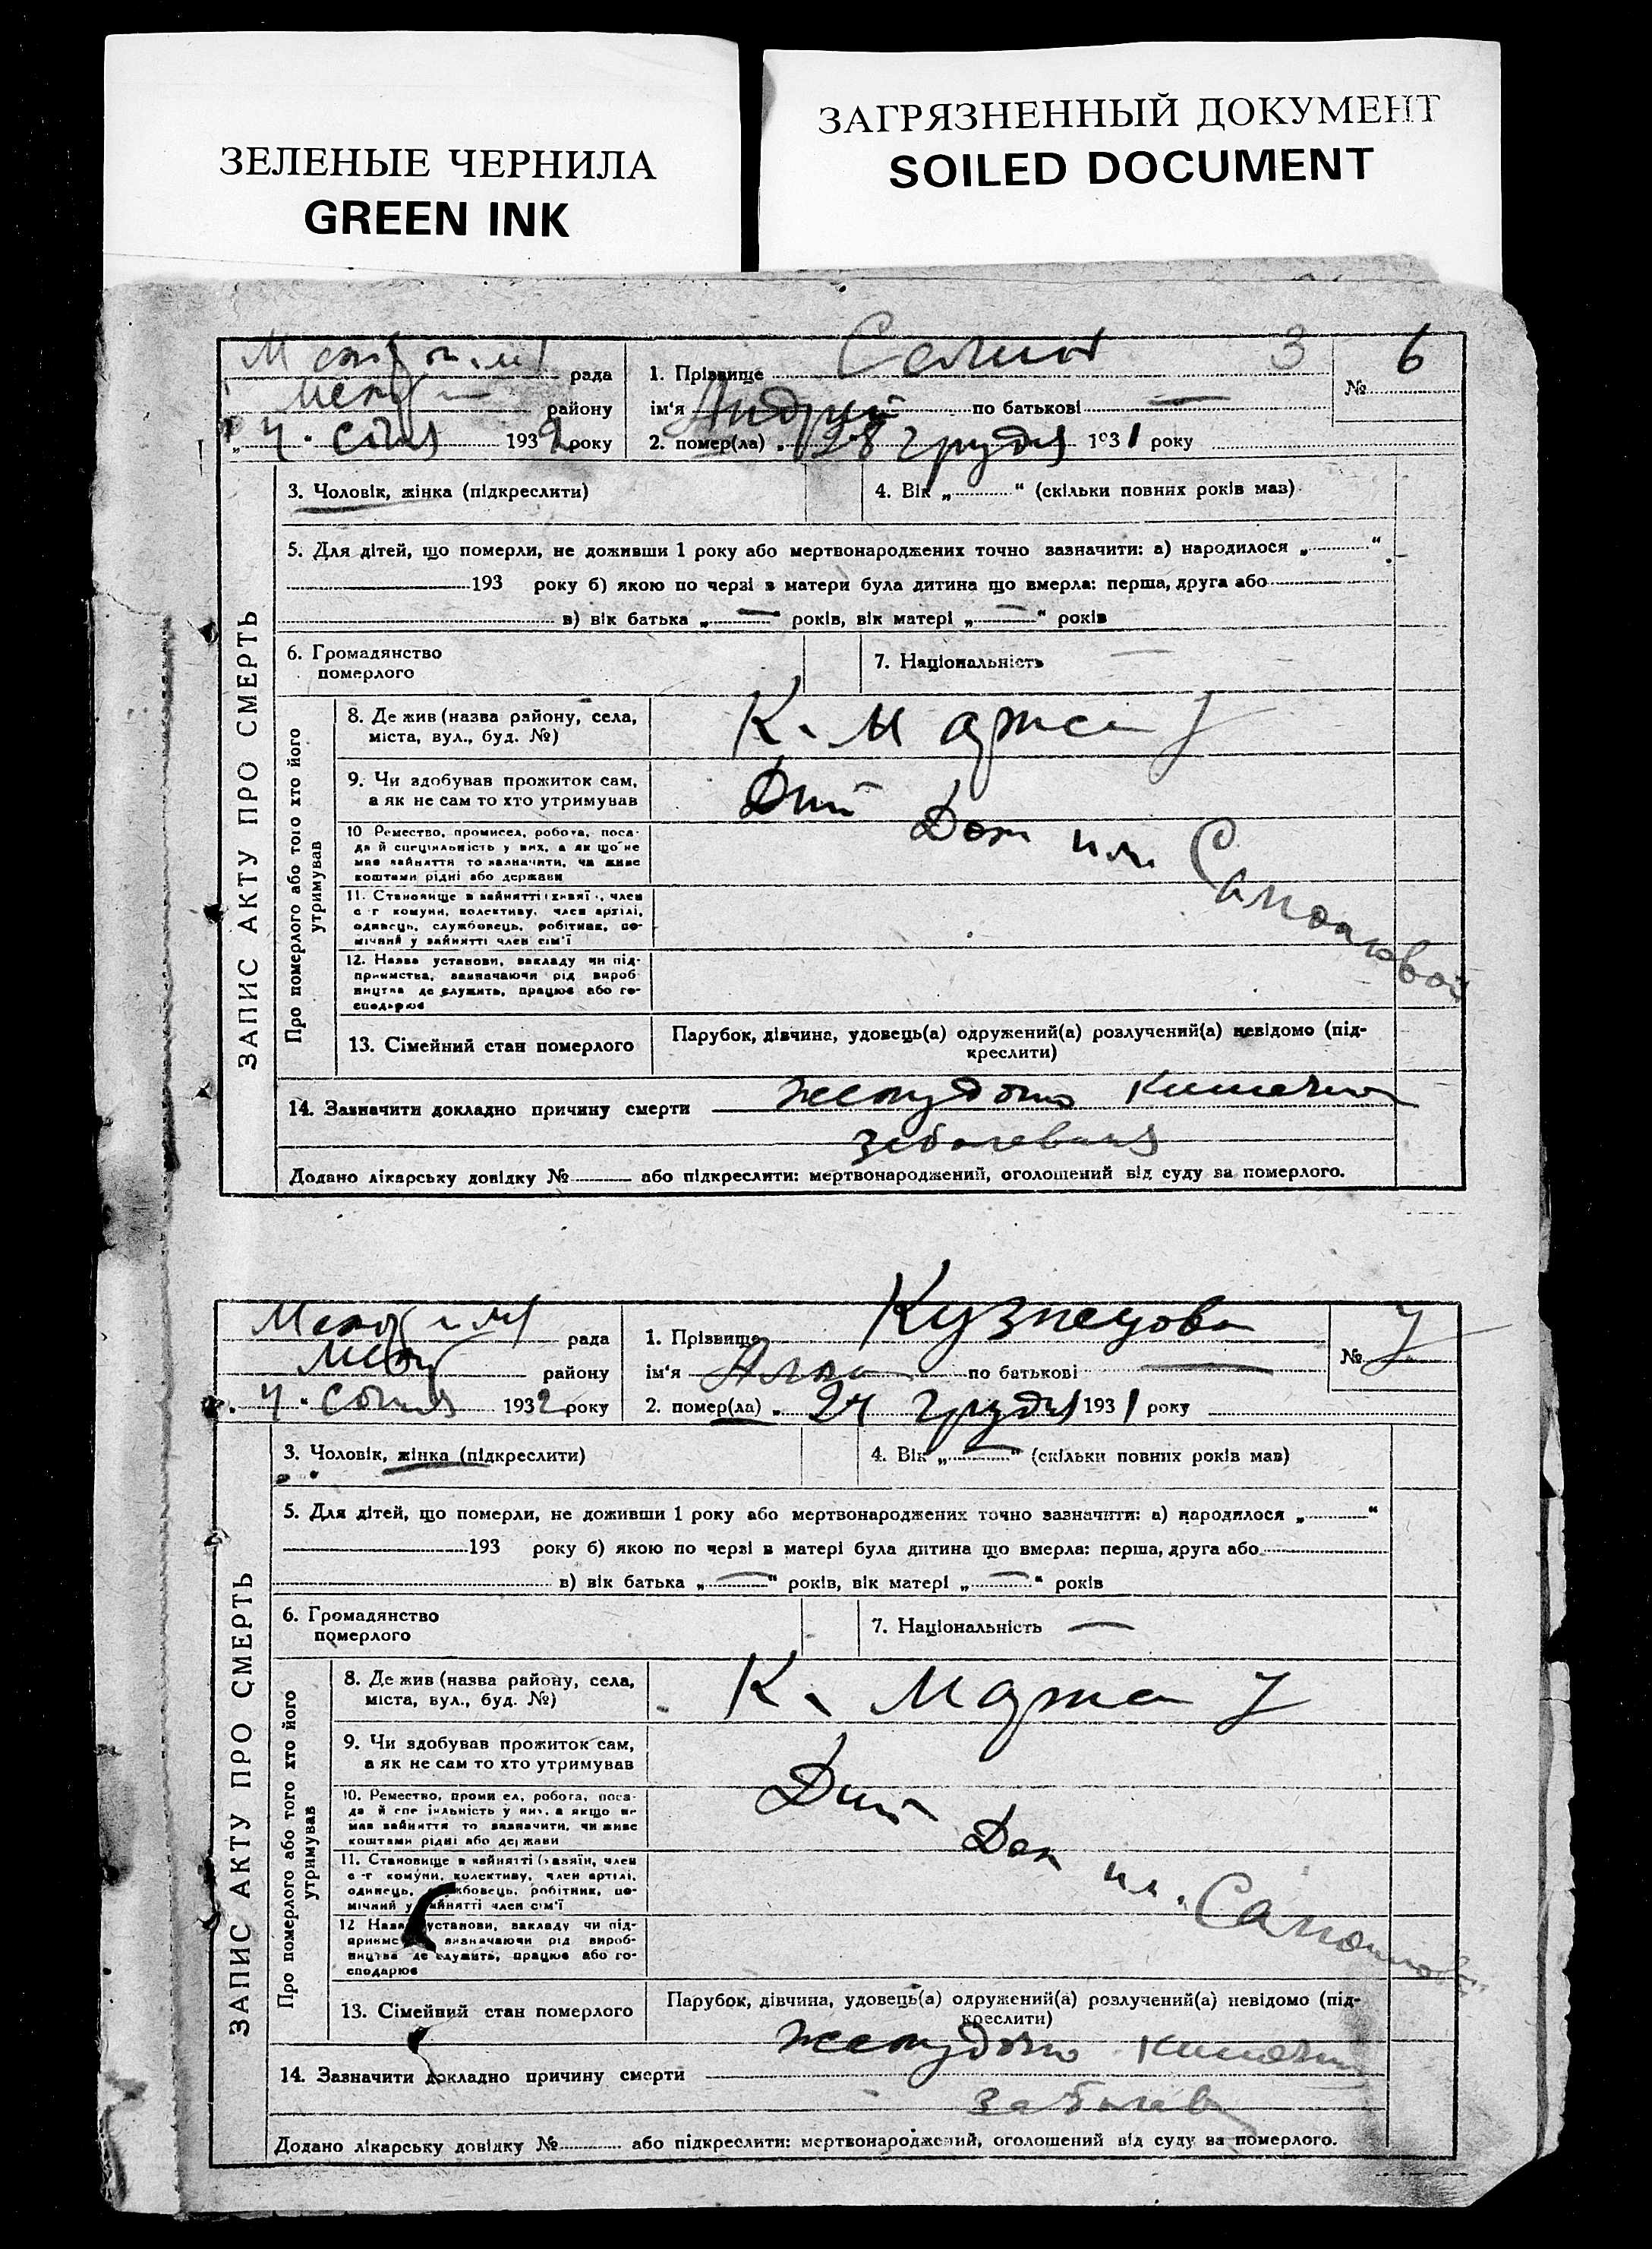 ЗЕЛЕНЫЕ ЧЕРНИЛА
GREEN INK
ЗАГРЯЗНЕННЫЙ ДОКУМЕНТ
SOILED DOCUMENT
рада
району
4 січня 1932 року
1. Прізвище 3
ім'я Андрій по батькові —
2. помер(ла) „28 грудня 1931 року
№ 6
ЗАПИС АКТУ ПРО СМЕРТЬ
3. Чоловік, жінка (підкреслити)
4. Вік „ “ (скільки повних років мав)
5. Для дітей, що померли, не доживши 1 року або мертвонароджених точно зазначити: а) народилося „ “
193 року б) якою по черзі в матери була дитина що вмерла: перша, друга або
в) вік батька „—“ років, вік матері „—“ років
6. Громадянство
померлого
7. Національність —
Про померлого або того хто його
утримував
8. Де жив (назва району, села,
міста, вул., буд. №)
К. Маркса 7
9. Чи здобував прожиток сам,
а як не сам то хто утримував
Дит Дом им
10 Ремество, промисел, робота, поса-
да й спеціяльність у них, а як що не
мав зайняття то зазначити, чи живе
коштами рідні або держави
11. Становище в зайнятті (хазяї , член
с-г комуни, колективу, член артілі,
одинець, службовець, робітник, по-
мічний у зайнятті член сім'ї
12. Назва установи, закладу чи під-
приємства, зазначаючи рід вироб-
ництва де служить, працює або го-
сподарює
13. Сімейний стан померлого
Парубок, дівчина, удовець(а) одружений(а) розлучений(а) невідомо (під-
креслити)
14. Зазначити докладно причину смерти желудочно кишечно
заболевания
Додано лікарську довідку № або підкреслити: мертвонароджений, оголошений від суду за померлого.
рада
району
4 січня 1932 року
1. Прізвище Кузнецова
ім'я по батькові —
2. помер(ла) „ 24 грудня 1931 року
№ 7
ЗАПИС АКТУ ПРО СМЕРТЬ
3. Чоловік, жінка (підкреслити)
4. Вік „—“ (скільки повних років мав)
5. Для дітей, що померли, не доживши 1 року або мертвонароджених точно зазначити: а) народилося „ “
193 року б) якою по черзі в матері була дитина що вмерла: перша, друга або
в) вік батька „—“ років, вік матері „—“ років
6. Громадянство
померлого
7. Національність —
Про померлого або того хто його
утримував
8. Де жив (назва району, села,
міста, вул., буд. №)
К. Маркса 7
9. Чи здобував прожиток сам,
а як не сам то хто утримував
Дит Дом им.
10. Ремество, проми ел, робота, поса-
да й спе іяльність у них, а якщо не
мав зайняття то зазначити, чи живе
коштами рідні або держави
11. Становище в зайнятті (хазяїн, член
с-г комуни, колективу, член артілі,
одинець, жбовець, робітник, по-
мічний у зайнятті член сім'ї
12 Назва установи, закладу чи під-
приємс зазначаючи рід вироб-
ництва де служить, працює або го-
сподарює
13. Сімейний стан померлого
Парубок, дівчина, удовець(а) одружений(а) розлучений(а) невідомо (під-
креслити)
14. Зазначити докладно причину смерти желудочно кишечно
заболев
Додано лікарську довідку № або підкреслити: мертвонароджений, оголошений від суду за померлого.